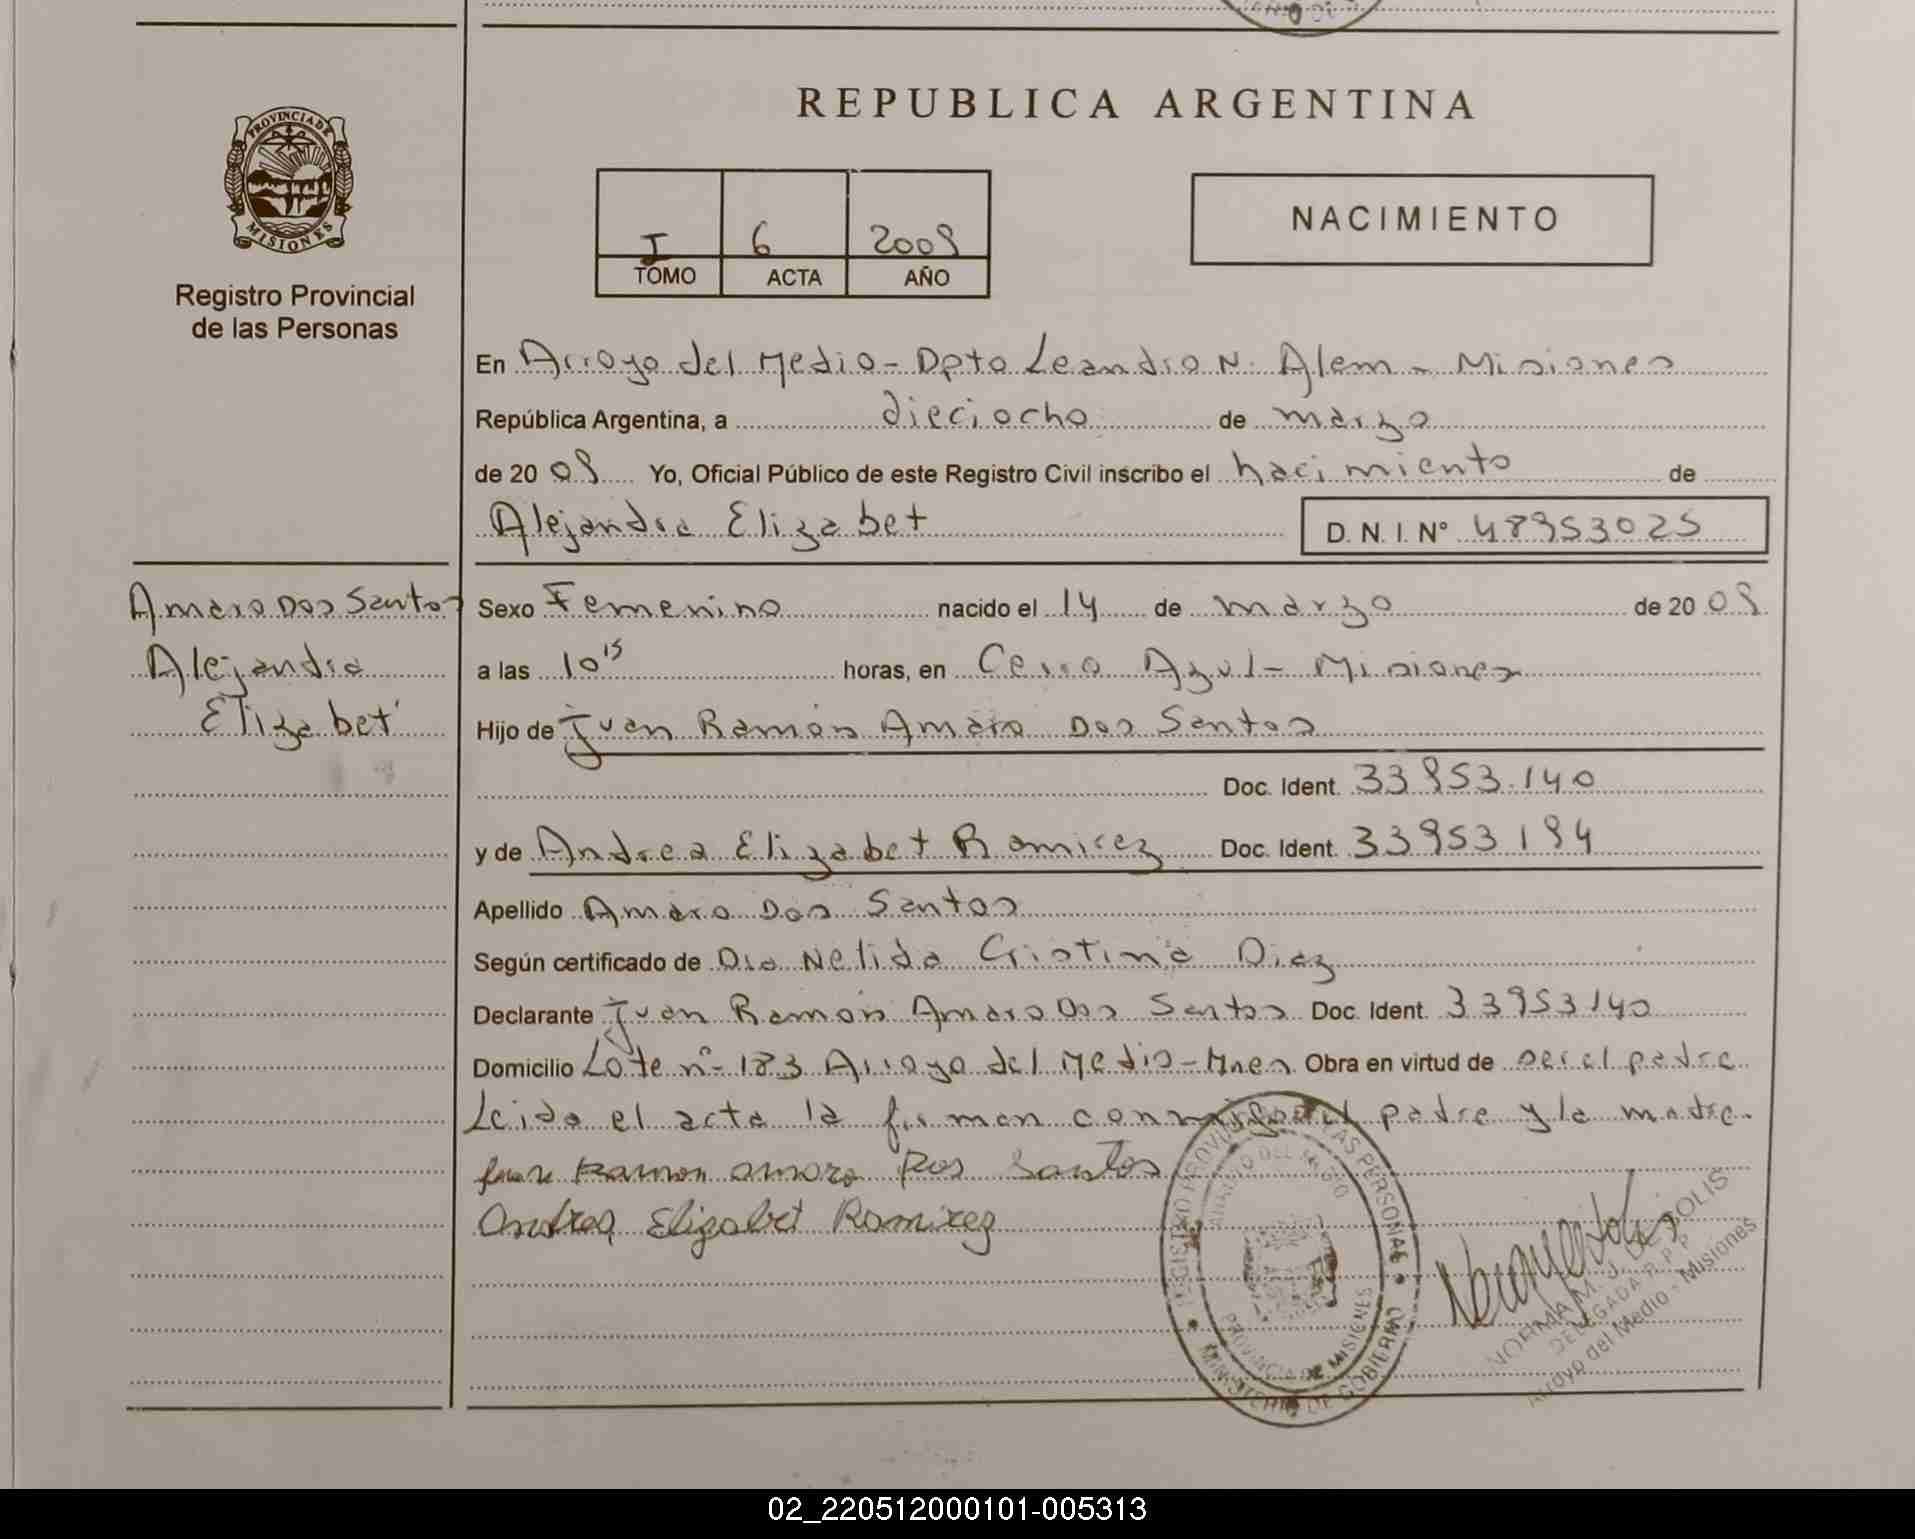 REPUBLICA ARGENTINA
PROVINCIA DE
MISIONES
Registro Provincial
de las Personas
I 6 2009
TOMO ACTA AÑO
NACIMIENTO
En Arroyo del Medio - Dpto Leandro N. Alem - Misiones
República Argentina, a dieciocho de marzo
de 20 09 Yo, Oficial Público de este Registro Civil inscribo el nacimiento de
Alejandra Elizabet D. N. I. N° 48953025
Amaro Dos Santos
Alejandra
Elizabet
Sexo Femenino nacido el 14 de marzo de 20 09
a las 10 15 horas, en Cerro Azul - Misiones
Hijo de Juan Ramón Amaro Dos Santos
Doc. Ident. 33953.140
y de Andrea Elizabet Ramirez Doc. Ident. 33953194
Apellido Amaro Dos Santos
Según certificado de Dra Nelida Cristina Diaz
Declarante Juan Ramón Amaro Dos Santos Doc. Ident. 33953140
Domicilio Lote nº 183 Arroyo del Medio - Mnes Obra en virtud de ser el padre
Leida el acta la firman conmigo el padre y la madre.
Juan Ramon Amaro Dos Santos
Andrea Elizabet Ramirez
REGISTRO PROVINCIAL DE LAS PERSONAS
ARROYO DEL MEDIO
PROVINCIA DE MISIONES
MINISTERIO DE GOBIERNO
NORMA M. J.
DELEGADA R.P.P.
Arroyo del Medio - Misiones
02_220512000101-005313